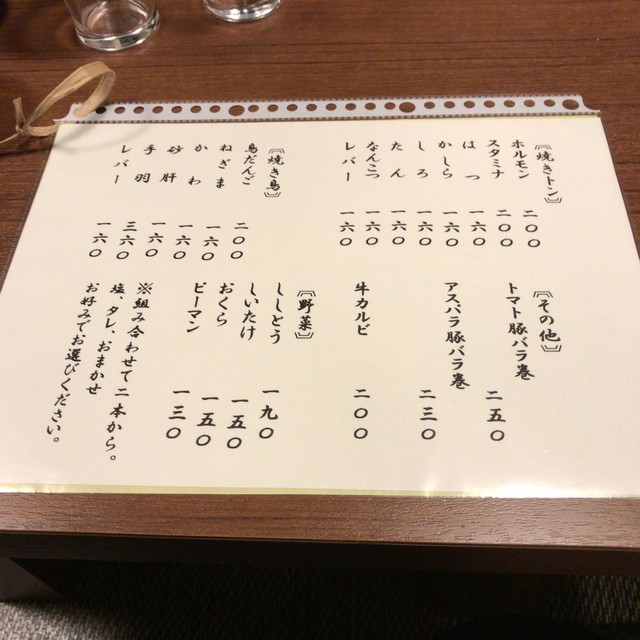 【焼きトン】
ホルモン 二〇〇
スタミナ 二〇〇
はつ 一六〇
かしら 一六〇
しろ 一六〇
たん 一六〇
なんこつ 一六〇
レバー 一六〇
【焼き鳥】
鳥だんご 二〇〇
ねぎま 一六〇
かわ 一六〇
砂肝 一六〇
手羽 三六〇
レバー 一六〇
【その他】
トマト豚バラ巻 二五〇
アスパラ豚バラ巻 二三〇
牛カルビ 二〇〇
【野菜】
ししとう 一九〇
しいたけ 一五〇
おくら 一五〇
ピーマン 一三〇
※組み合わせて二本から。
塩、タレ、おまかせ
お好みでお選びください。